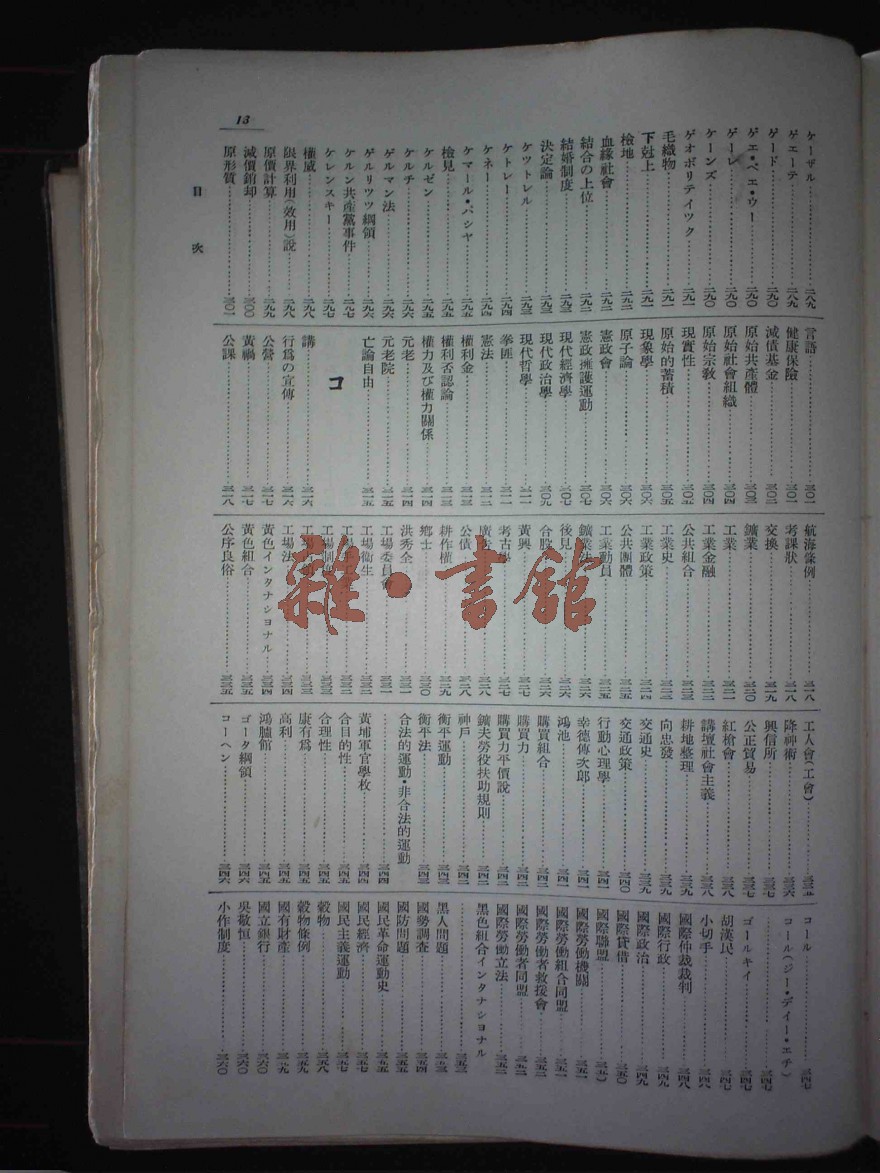 13
目次
ケーザル……二八九
ゲエーテ……二八九
ゲード……二九〇
ゲエ・ペエ・ウー……二九〇
ゲーレ……二九〇
ケーンズ……二九〇
ゲオポリテイツク……二九一
毛織物……二九一
下尅上……二九一
檢地……二九二
血緣社會……二九二
結合の上位……二九二
結婚制度……二九三
決定論……二九三
ケツトレル……二九四
ケトレー……二九四
ケネー……二九四
ケマール・パシヤ……二九五
檢見……二九五
ケルゼン……二九五
ケルチ……二九六
ゲルマン法……二九六
ゲルリツツ綱領……二九六
ケルン共產黨事件……二九七
ケレンスキー……二九七
權威……二九八
限界利用(效用)說……二九八
原價計算……二九九
減價銷却……三〇〇
原形質……三〇一
言語……三〇一
健康保險……三〇一
減債基金……三〇二
原始共產體……三〇三
原始社會組織……三〇四
原始宗敎……三〇四
現實性……三〇五
原始的蓄積……三〇五
現象學……三〇五
原子論……三〇六
憲政會……三〇六
憲政擁護運動……三〇七
現代經濟學……三〇七
現代政治學……三〇九
現代哲學……三一一
拳匪……三一一
憲法……三一二
權利金……三一三
權利否認論……三一三
權力及び權力關係……三一四
元老……三一四
元老院……三一五
亡論自由……三一五
コ
講……三一六
行爲の宣傳……三一六
公營……三一七
黃禍……三一七
公課……三一八
航海條例……三一八
考課狀……三一八
交換……三一九
鑛業……三二〇
工業……三二一
工業金融……三二二
公共組合……三二三
工業史……三二三
工業政策……三二四
公共團體……三二五
工業動員……三二五
鑛業法……三二六
後見……三二六
合股……三二六
黃興……三二七
考古學……三二七
公債……三二八
耕作權……三二九
鄕士……三三〇
洪秀全……三三一
工場委員會……三三一
工場衞生……三三二
工場法……三三四
黃色インタナシヨナル……三三四
黃色組合……三三五
公序良俗……三三五
工人會(工會)……三三五
降神術……三三六
興信所……三三七
公正貿易……三三七
紅槍會……三三八
講壇社會主義……三三八
耕地整理……三三九
向忠發……三三九
交通史……三三九
交通政策……三四〇
行動心理學……三四一
幸德傳次郎……三四一
鴻池……三四一
購買組合……三四二
購買力……三四二
購買力平價說……三四二
鑛夫勞役扶助規則……三四二
神戶……三四二
衡平運動……三四三
衡平法……三四三
合法的運動・非合法的運動
……三四四
黃埔軍官學校……三四四
合目的性……三四五
合理性……三四五
康有爲……三四五
高利……三四五
鴻臚館……三四五
ゴータ綱領……三四六
コーヘン……三四六
コール……三四七
コール(ジー・デイー・エチ)
……三四七
ゴールキイ……三四七
胡漢民……三四七
小切手……三四八
國際仲裁裁判……三四八
國際行政……三四九
國際政治……三四九
國際貸借……三五〇
國際聯盟……三五〇
國際勞働機關……三五一
國際勞働組合同盟……三五一
國際勞働者救援會……三五二
國際勞働者同盟……三五二
國際勞働立法……三五二
黑色組合インタナシヨナル
……三五三
黑人問題……三五三
國勢調査……三五四
國防問題……三五五
國民革命運動史……三五五
國民經濟……三五七
國民主義運動……三五七
穀物……三五八
穀物條例……三五九
國有財產……三五九
國立銀行……三六〇
吳敬恒……三六〇
小作制度……三六〇
雜·書館